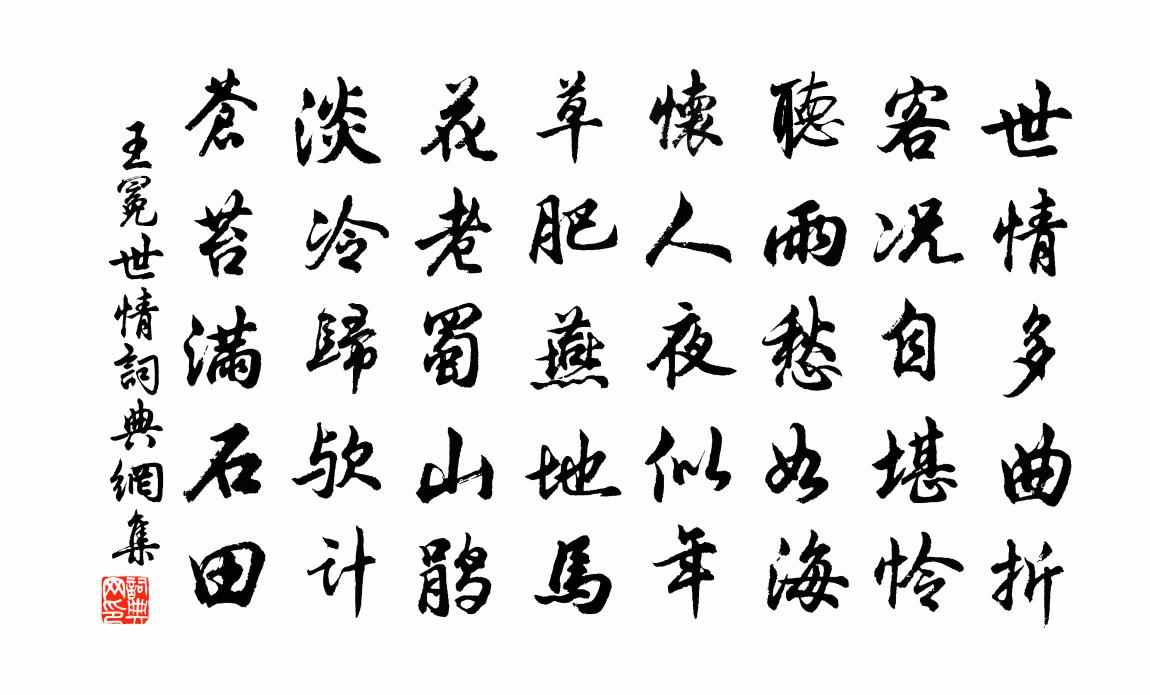 世情多曲折
客况自堪怜
聽雨愁如海
懷人夜似年
草肥燕地馬
花老蜀山鹃
淡冷歸欤计
蒼苔滿石田
王冕世情詞典網集
詞典